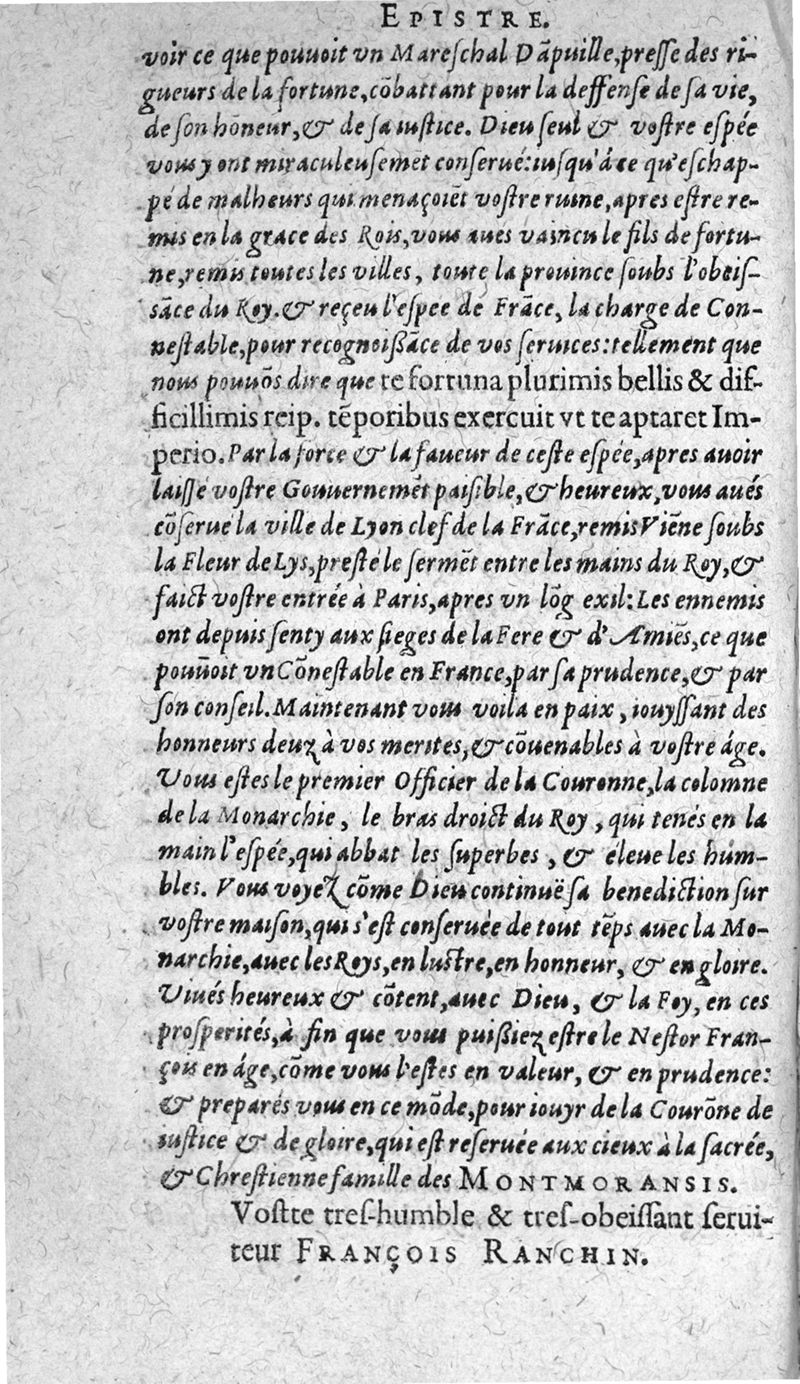 EPISTRE.
voir ce que pouuoit vn Mareſchal Dãpuille,preſſe des ri-
gueurs de la fortune,cõbattant pour la deffenſe de ſa vie,
de ſon hõneur,& de ſa iuſtice. Dieu ſeul & voſtre eſpée
vous y ont miraculeuſemẽt conſerué:iuſqu'à ce qu'eſchap-
pé de malheurs qui menaçoiẽt voſtre ruine,apres eſtre re-
mis en la grace des Rois,vous aues vaincu le fils de fortu-
ne,remis toutes les villes, toute la prouince ſoubs l'obeiſ-
ſãce du Roy.& reçeu l'eſpee de Frãce, la charge de Con-
neſtable,pour recognoißãce de vos ſeruices:tellement que
nous pouuõs dire que te fortuna plurimis bellis & dif-
ficillimis reip. tẽporibus exercuit vt te aptaret Im-
perio.Par la force & la faueur de ceſte eſpée,apres auoir
laiſſé voſtre Gouuernemẽt paiſible,& heureux,vous aués
cõſerue la ville de Lyon clef de la Frãce,remis Viẽne ſoubs
la Fleur de Lys,preſté le ſermẽt entre les mains du Roy,&
faict voſtre entrée à Paris,apres vn lõg exil:Les ennemis
ont depuis ſenty aux ſieges de la Fere & d'Amiẽs,ce que
pouũoit vn Cõneſtable en France,par ſa prudence,& par
ſon conſeil.Maintenant vous voila en paix, iouyſſant des
honneurs deuz à vos merites,& cõuenables à voſtre áge.
Vous eſtes le premier Officier de la Couronne,la colomne
de la Monarchie, le bras droict du Roy, qui tenés en la
main l'eſpée,qui abbat les ſuperbes, & éleue les hum-
bles. Vous voyez cõme Dieu continuë ſa benediction ſur
voſtre maiſon,qui s'eſt conſeruée de tout tẽps auec la Mo-
narchie,auec les Roys,en luſtre,en honneur, & en gloire.
Viués heureux & cõtent,auec Dieu, & la Foy,en ces
proſperités,à fin que vous puißiez eſtre le Neſtor Fran-
çois en áge,cõme vous l'eſtes en valeur, & en prudence:
& preparés vous en ce mõde,pour iouyr de la Courõne de
iuſtice & de gloire,qui eſt reſeruée aux cieux à la ſacrée,
& Chreſtienne famille des MONTMORANSIS.
Voſtte treſ-humble & treſ-obeiſſant ſerui-
teur FRANÇOIS RANCHIN.